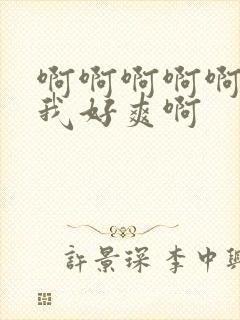 啊啊啊啊啊
我好爽啊
許景琛 李中興